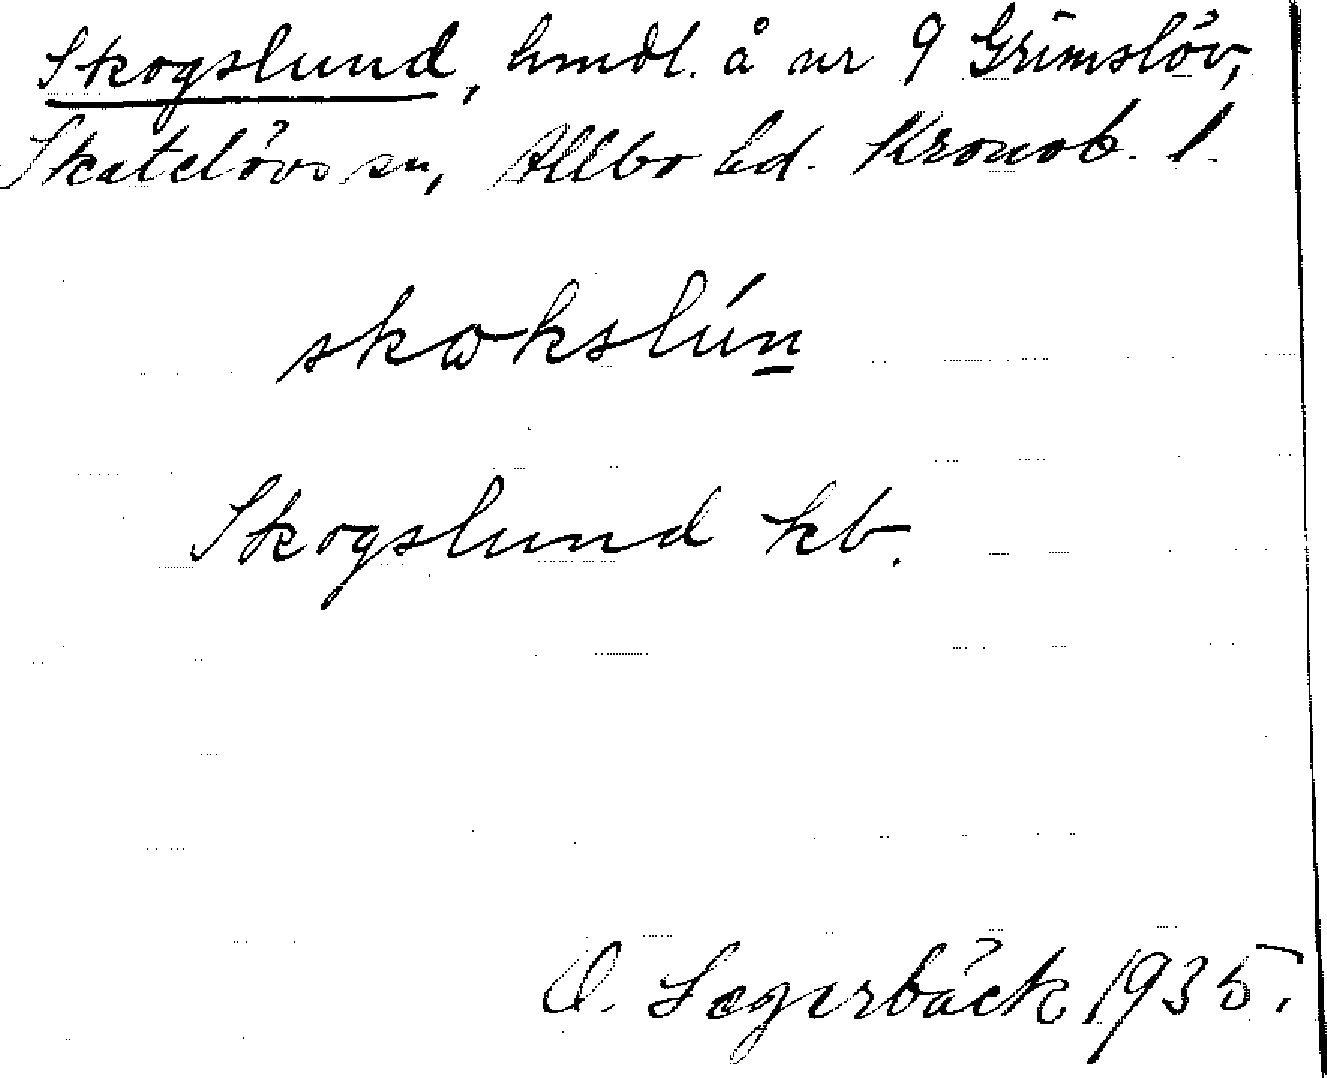 Skogslund, hmdl. å nr 9 Grimslöv,
Skatelövs sn, Allbo hd. Kronob. l.
skωkslún̲
Skogslund kb.
O. Lagerbäck 1935.